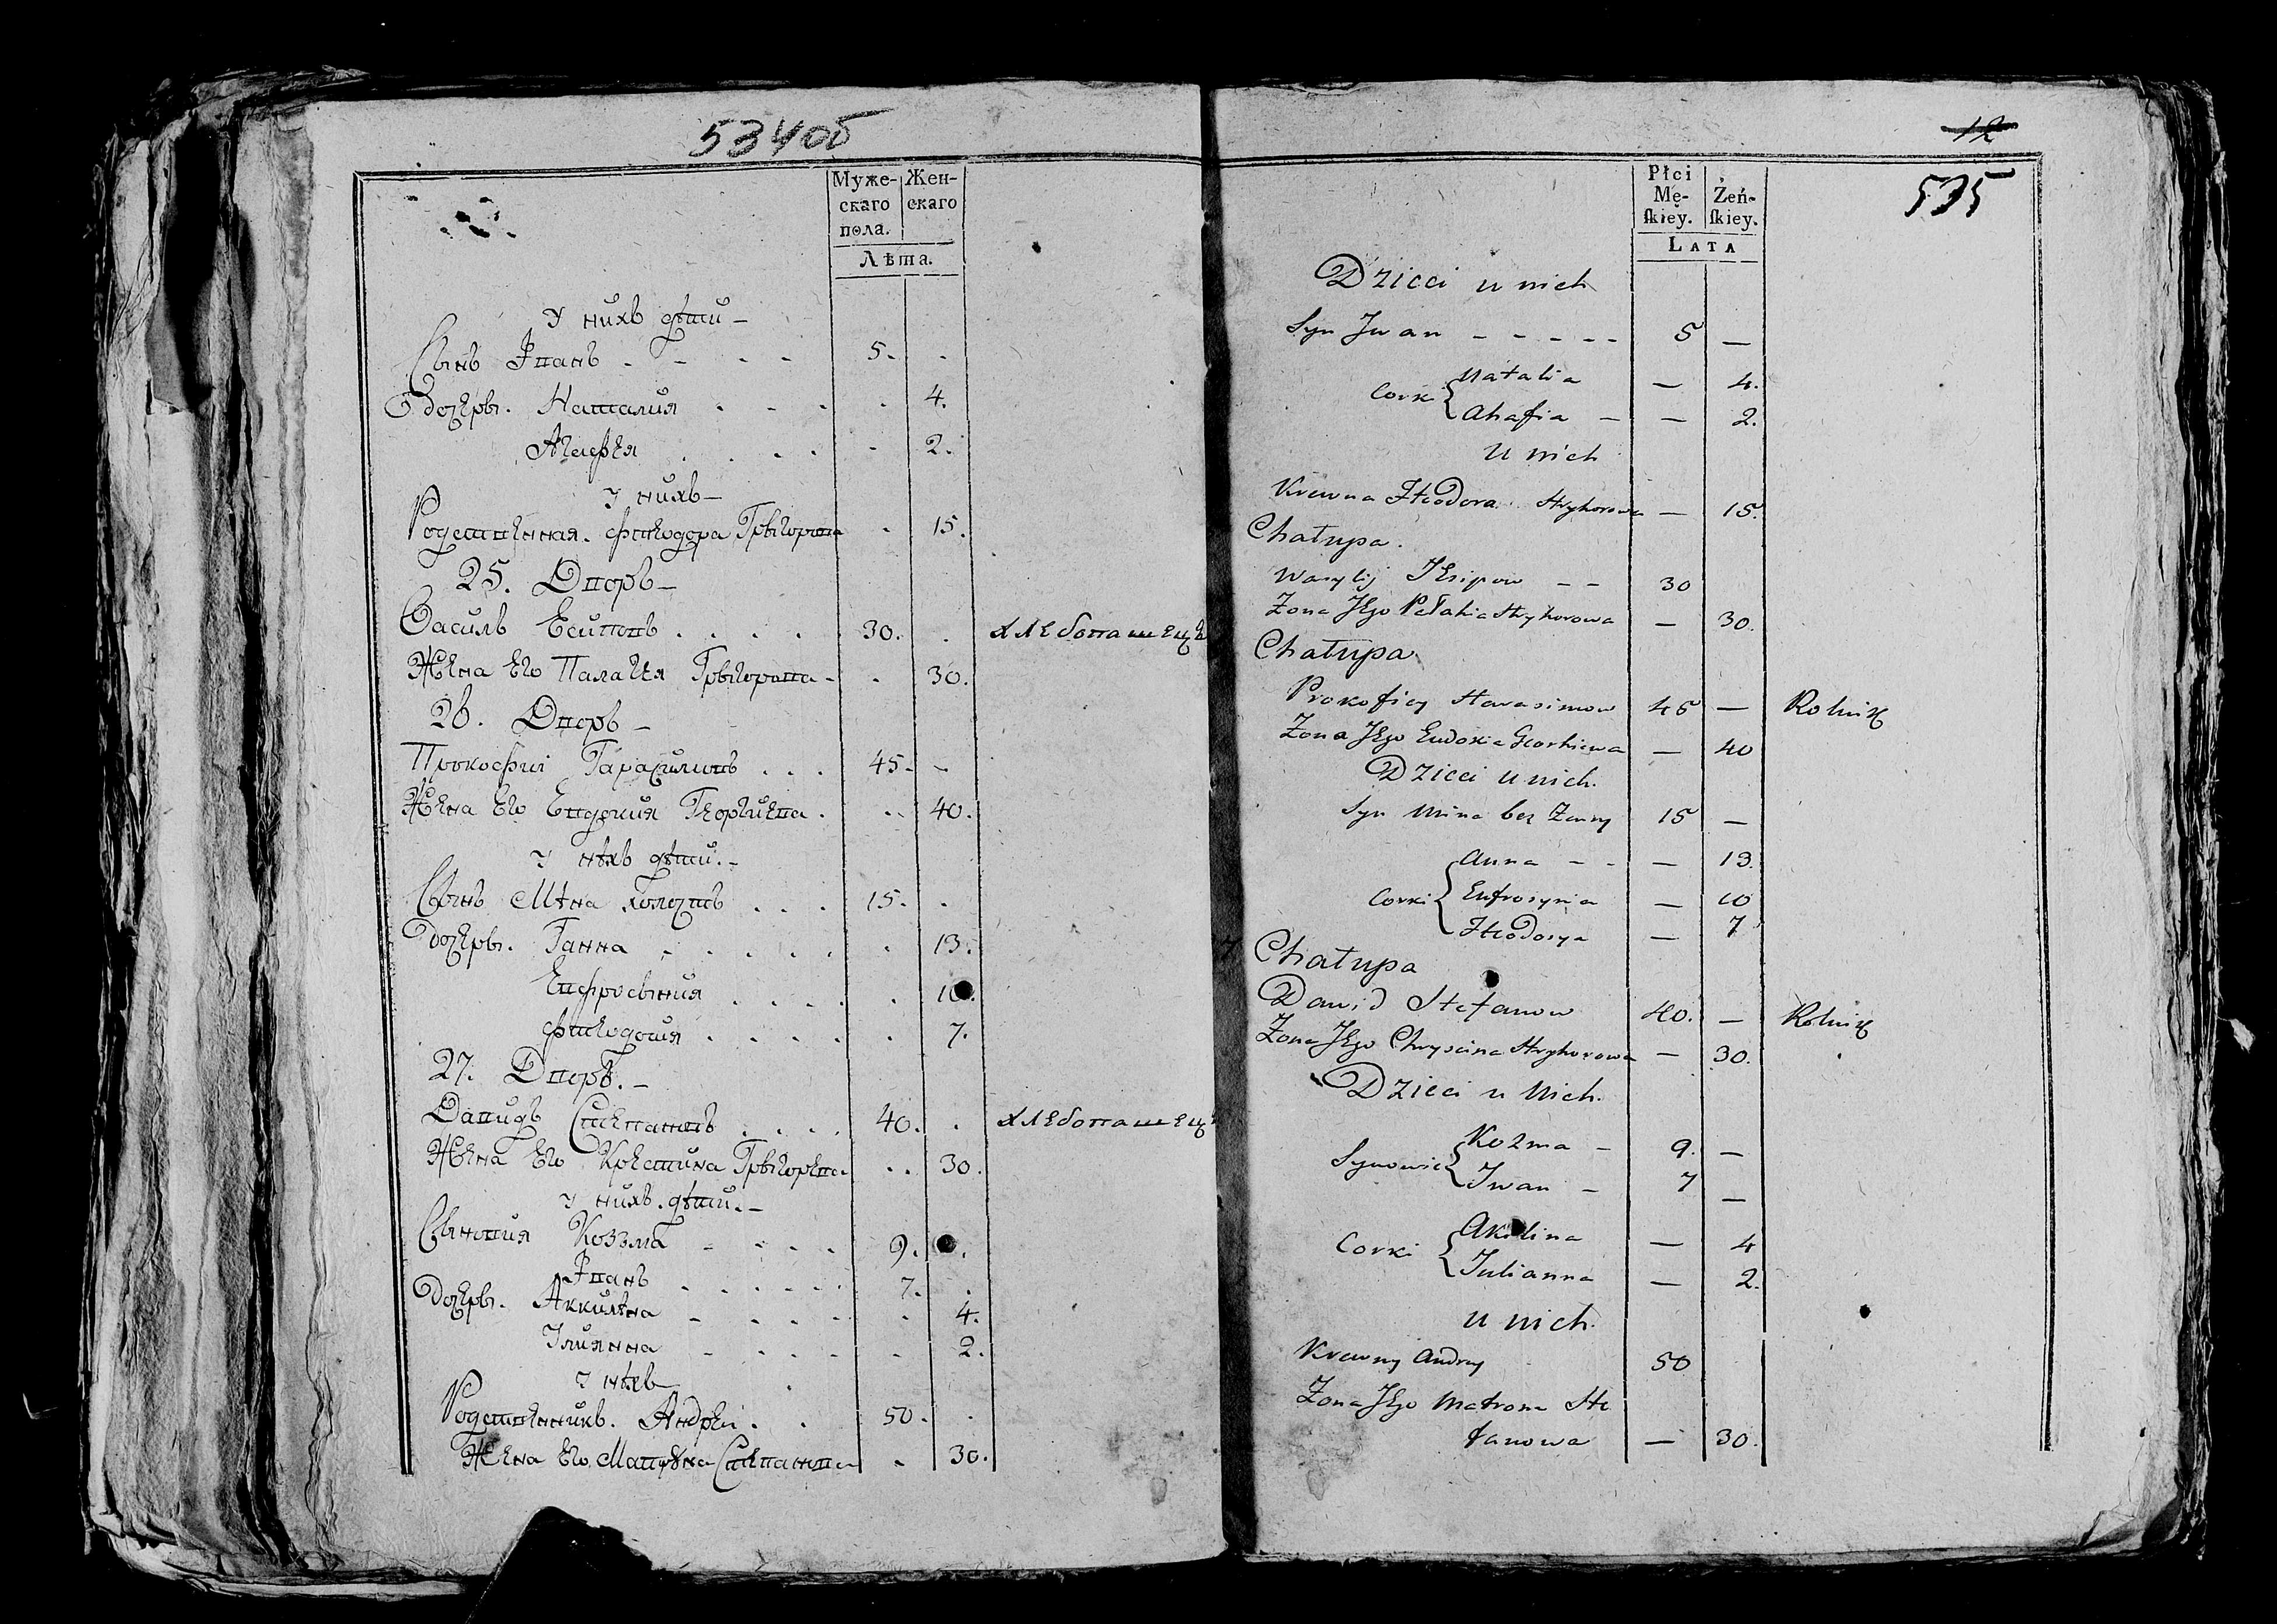 534об
Муже- Жен-
скаго скаго
пола.
Лѣта.
У нихъ дѣти –
Сынъ Иванъ . – . – 5. .
Дочери. Наталия . – . . 4.
Агафея . . . . 2.
У нихъ –
Родственная. Фтеодора Грыгорова . 15.
25. Дворъ –
Василь Есиповъ . . . . 30. . хлебопашецъ
Жена Его Палагея Грыгорова – . 30.
26. Дворъ –
Прокофиі Гарасимовъ . . . 45. –
Жена Его Евдокия Георгиева . . . 40.
У нѣхъ дѣти. –
Сынъ Мѣна холостъ . . . 15. .
Дочери. Ганна . . . . . . 13.
Евфросыния . . . . . 10.
Фтеодосия . . . . . . 7.
27. Дворъ. –
Давидъ Степановъ . . . . 40. . хлебопашецъ
Жена Его Крестина Грыгорева . . 30.
У нихъ. дѣти. –
Сыновия Коззма – . . . 9. .
Иванъ . . . . . . 7. .
Дочери. Аккилѣна – . . . . 4.
Улиянна – . . . – 2.
У нѣхъ –
Родственникъ. Андреі . . 50. .
Жена Его Матрона Степанова . 30.
12
Płci
Mę- Żeń-
ſkiey. ſkiey.
LATA
535
Dzieci u nich
Syn Jwan – – – – – 5 —
Corki { Natalia — 4.
Ahafia – — 2.
U nich
Krewna Fteodora Hryhorowa — 15.
Chałupa.
Wasylij JEsipow – – 30
Żona JEgo Pełahia Hryhorowa — 30.
Chałupa
Prokofiey Harasimow 45 — Rolnik
Żona JEgo Eudoxia Georhiewa — 40
Dzieci u nich.
Syn Mina bez Żonny 15 —
Corki { Anna – – — 13.
Eufrosynia — 10
Fteodosya — 7
Chałupa
Dawid Stefanow 40. — Rolnik
Żona JEgo Chrysina Hryhorowa — 30.
Dzieci u Nich.
Synowie { Kozma – 9. —
Jwan – 7 —
Corki { Akilina — 4
Julianna — 2.
u nich.
Krewny Andrey 50
Żona JEgo Matrona Ste
fanowa — 30.